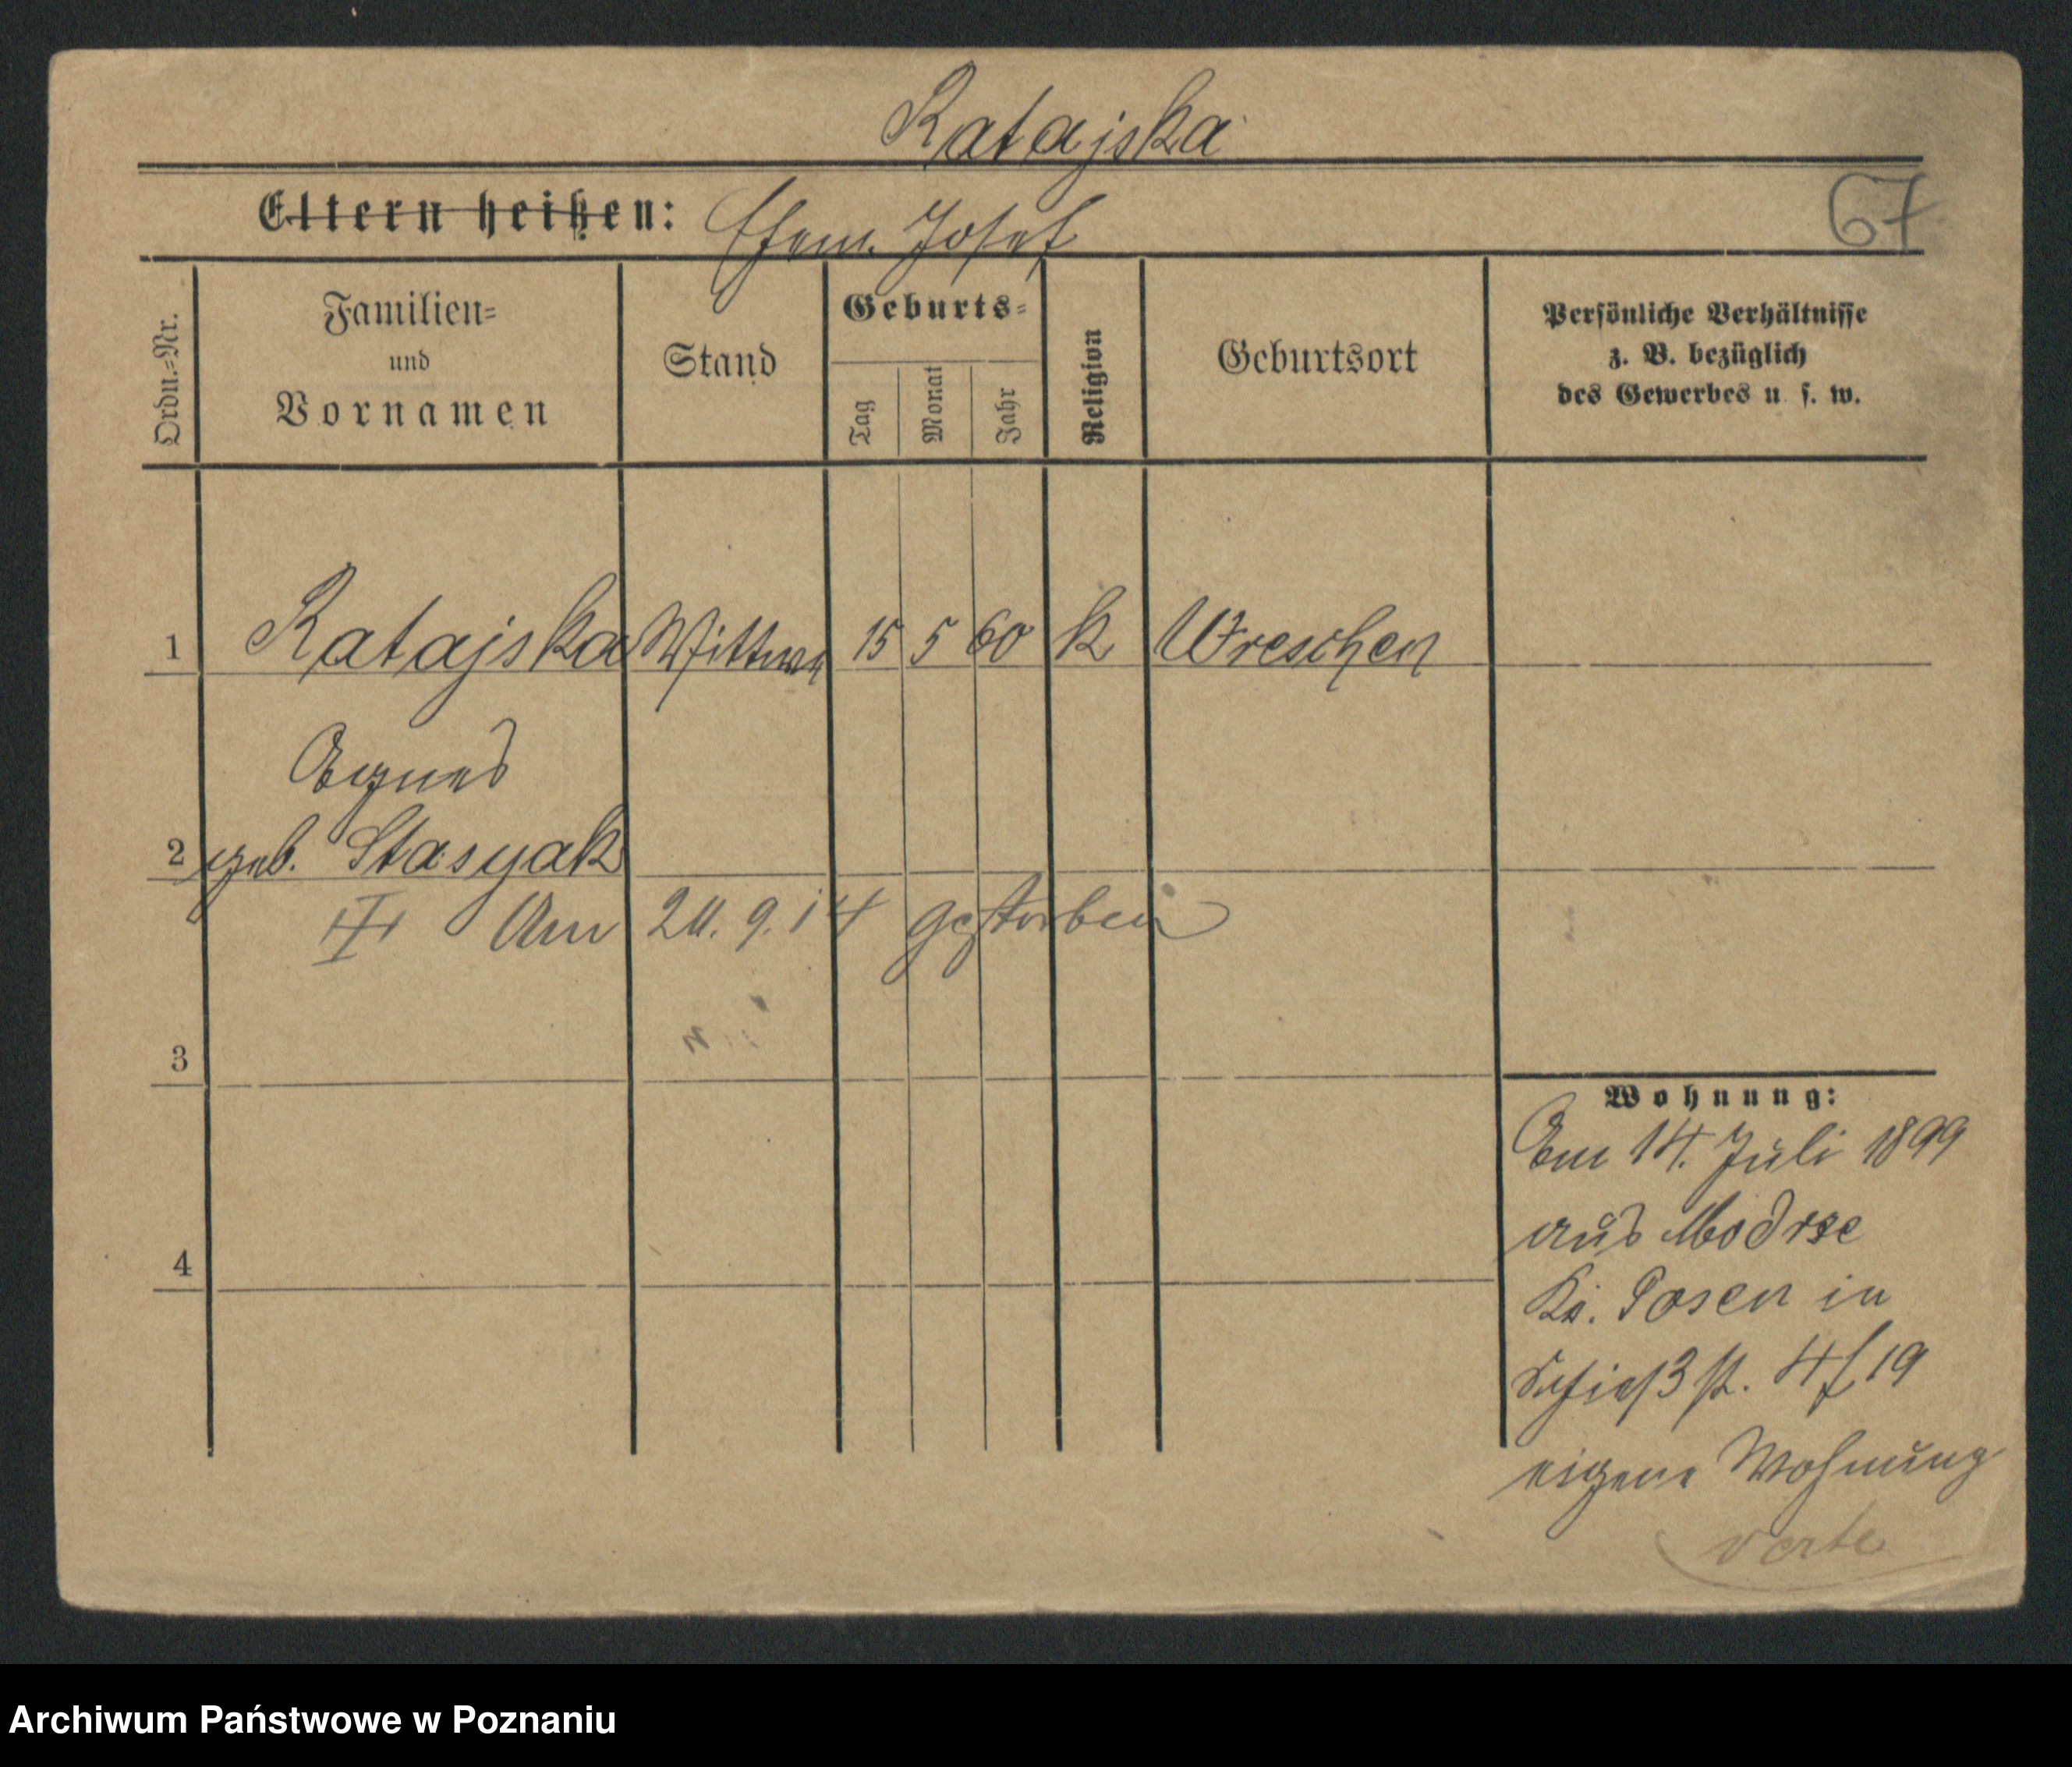 Ratajska
Eltern heißen: Ehem. Josef
67
Ordn.=Nr.
Familien=
und
Vornamen
Stand
Geburts=
Tag
Monat
Jahr
Religion
Geburtsort
Persönliche Verhältnisse
z. B. bezüglich
des Gewerbes u. s. w.
1 Ratajska Wittwe 15 5 60 k Wreschen
Agnes
2 geb. Stasyak
Am 24. 9. 14 gestorben
3
4
Wohnung:
Am 14. Juli 1899
aus Modrze
Kr. Posen in
Schießst. 4 f 19
eigene Wohnung
verte
Archiwum Państwowe w Poznaniu